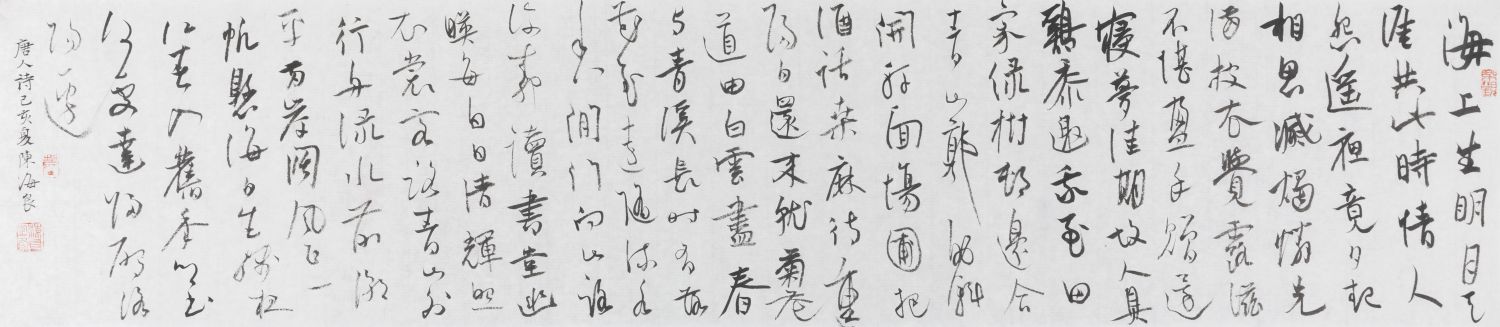 海上生明月天
涯共此時情人
怨遥夜竟夕起
相思滅燭憐光
滿披衣覺露滋
不堪盈手贈還
寢夢佳期故人具
鷄黍邀我至田
家绿樹邨邊合
青山郭外斜
開轩面場圃把
酒話桑麻待重
陽日還来就菊花
道由白雲盡春
与青溪長時有落
花至遠随流水
香閒门向山路
深柳讀書堂幽
映每白日清輝照
衣裳客路青山外
行舟绿水前潮
平两岸阔风正一
帆懸海日生殘夜
江春入舊年鄉书
何处達归雁洛
陽邊
唐人詩己亥夏陳海良